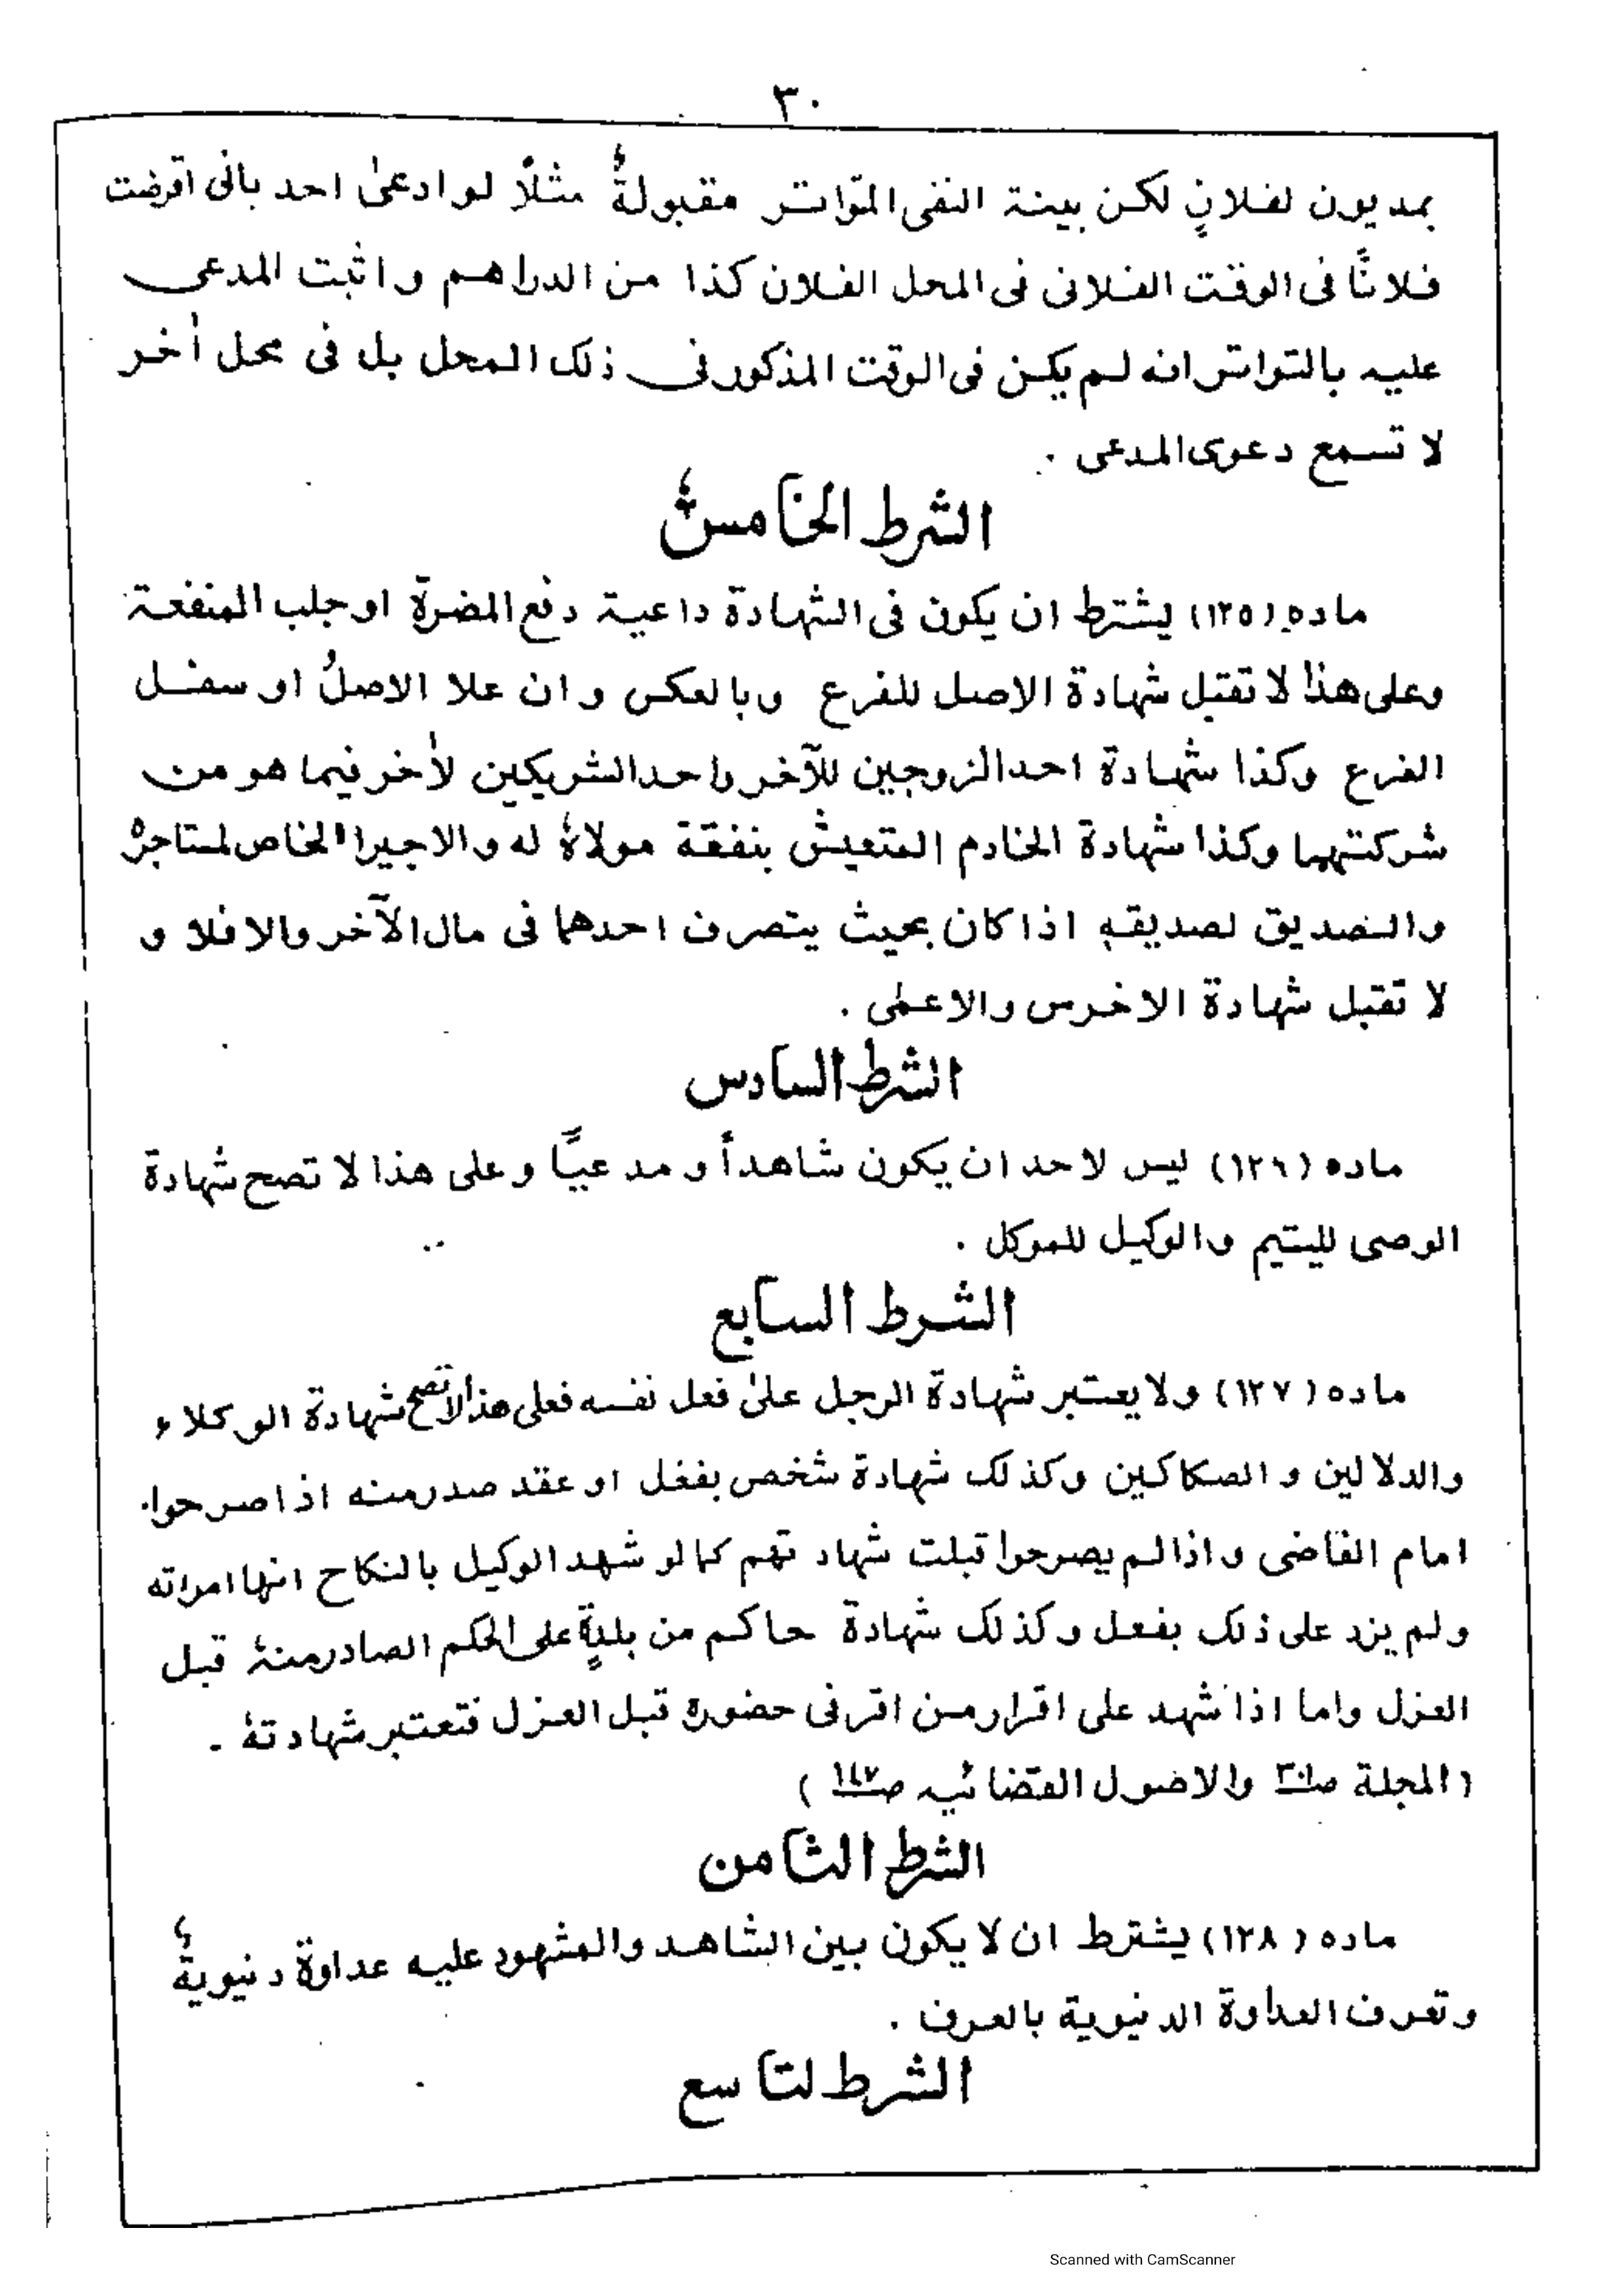 ٣٠
بمديون لفلانٍ لكن بينة النفى المتواتر مقبولةٌ مثلاً لو ادعىٰ احد بانى اقرضت
فلاناً فى الوقت الفلانى فى المحل الفلان كذا من الدراهم واثبت المدعى
عليه بالتواتر انه لم يكن فى الوقت المذكور فى ذلك المحل بل فى محل اٰخر
لا تسمع دعوى المدعى .
الشرط الخامسُ
ماده (١٢٥) يشترط ان يكون فى الشهادة داعية دفع المضرة او جلب المنفعة
وعلى هذا لا تقبل شهادة الاصل للفرع وبالعكس وان علا الاصلُ او سفل
الفرع وكذا شهادة احد الزوجين للآخر واحد الشريكين لأخر فيما هو من
شركتهما وكذا شهادة الخادم المتعيش بنفقة مولاهُ له والاجير الخاص لمستاجرهْ
والصديق لصديقهٖ اذا كان بحيث يتصرف احدهما فى مال الآخر والا فلا و
لا تقبل شهادة الاخرس والاعمٰى .
الشرط السادس
ماده (١٢٦) ليس لاحد ان يكون شاهداً و مدعيّاً وعلى هذا لا تصح شهادة
الوصى لليتيم والوكيل للموكل .
الشرط السابع
ماده (١٢٧) ولا يعتبر شهادة الرجل علىٰ فعل نفسه فعلى هذا لا تصح شهادة الوكلاء
والدلالين و الصكاكين وكذلك شهادة شخص بفعل او عقد صدر منه اذا صرحوا
امام القاضى واذا لم يصرحوا قبلت شهاد تهم كما لو شهد الوكيل بالنكاح انها امراته
ولم يزد على ذلك بفعل وكذلك شهادة حاكم من بلدةٍ على الحكم الصادر منهُ قبل
العزل واما اذا شهد على اقرار من اقر فى حضوره قبل العزل فتعتبر شهادتهٗ ۔
(المجلة صـ٣٠١ والاصول القضائيه صـ١٤٧ )
الشرط الثامن
ماده (١٢٨) يشترط ان لا يكون بين الشاهد والمشهود عليه عداوة دنيويةٌ
وتعرف العداوة الدنيوية بالعرف .
الشرط لتاسع
Scanned with CamScanner